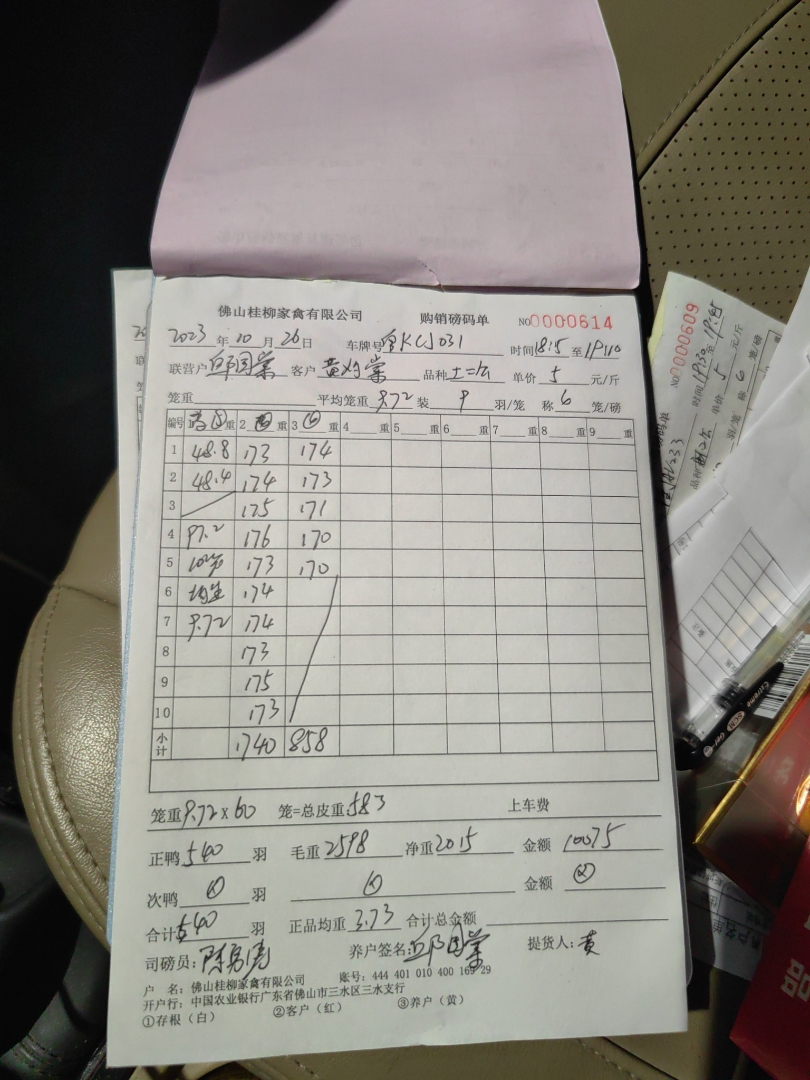 佛山桂柳家禽有限公司 购销磅码单 NO0000614
2023年10月26日 车牌号 KCJ031 时间18:15至19:10
联营户邱国棠 客户黄 棠 品种土二 单价5元/斤
笼重 平均笼重9.72装9羽/笼 称6笼/磅
编号 重 2 重 3 重 4 重 5 重 6 重 7 重 8 重 9 重
1 48.8 173 174
2 48.4 174 173
3 175 171
4 97.2 176 170
5 10 173 170
6 均 174
7 9.72 174
8 173
9 175
10 173
小计 1740 858
笼重9.72×60 笼=总皮重583 上车费
正鸭540羽 毛重2598 净重2015 金额10075
次鸭 羽 金额
合计540羽 正品均重3.73 合计总金额
司磅员: 陈 养户签名: 邱国棠 提货人: 黄
户 名: 佛山桂柳家禽有限公司 账号: 444 401 010 400 169 29
开户行: 中国农业银行广东省佛山市三水区三水支行
①存根（白） ②客户（红） ③养户（黄）
NO0000609
时间19:30至19:45
单价5元/斤
羽/笼 称6笼/磅